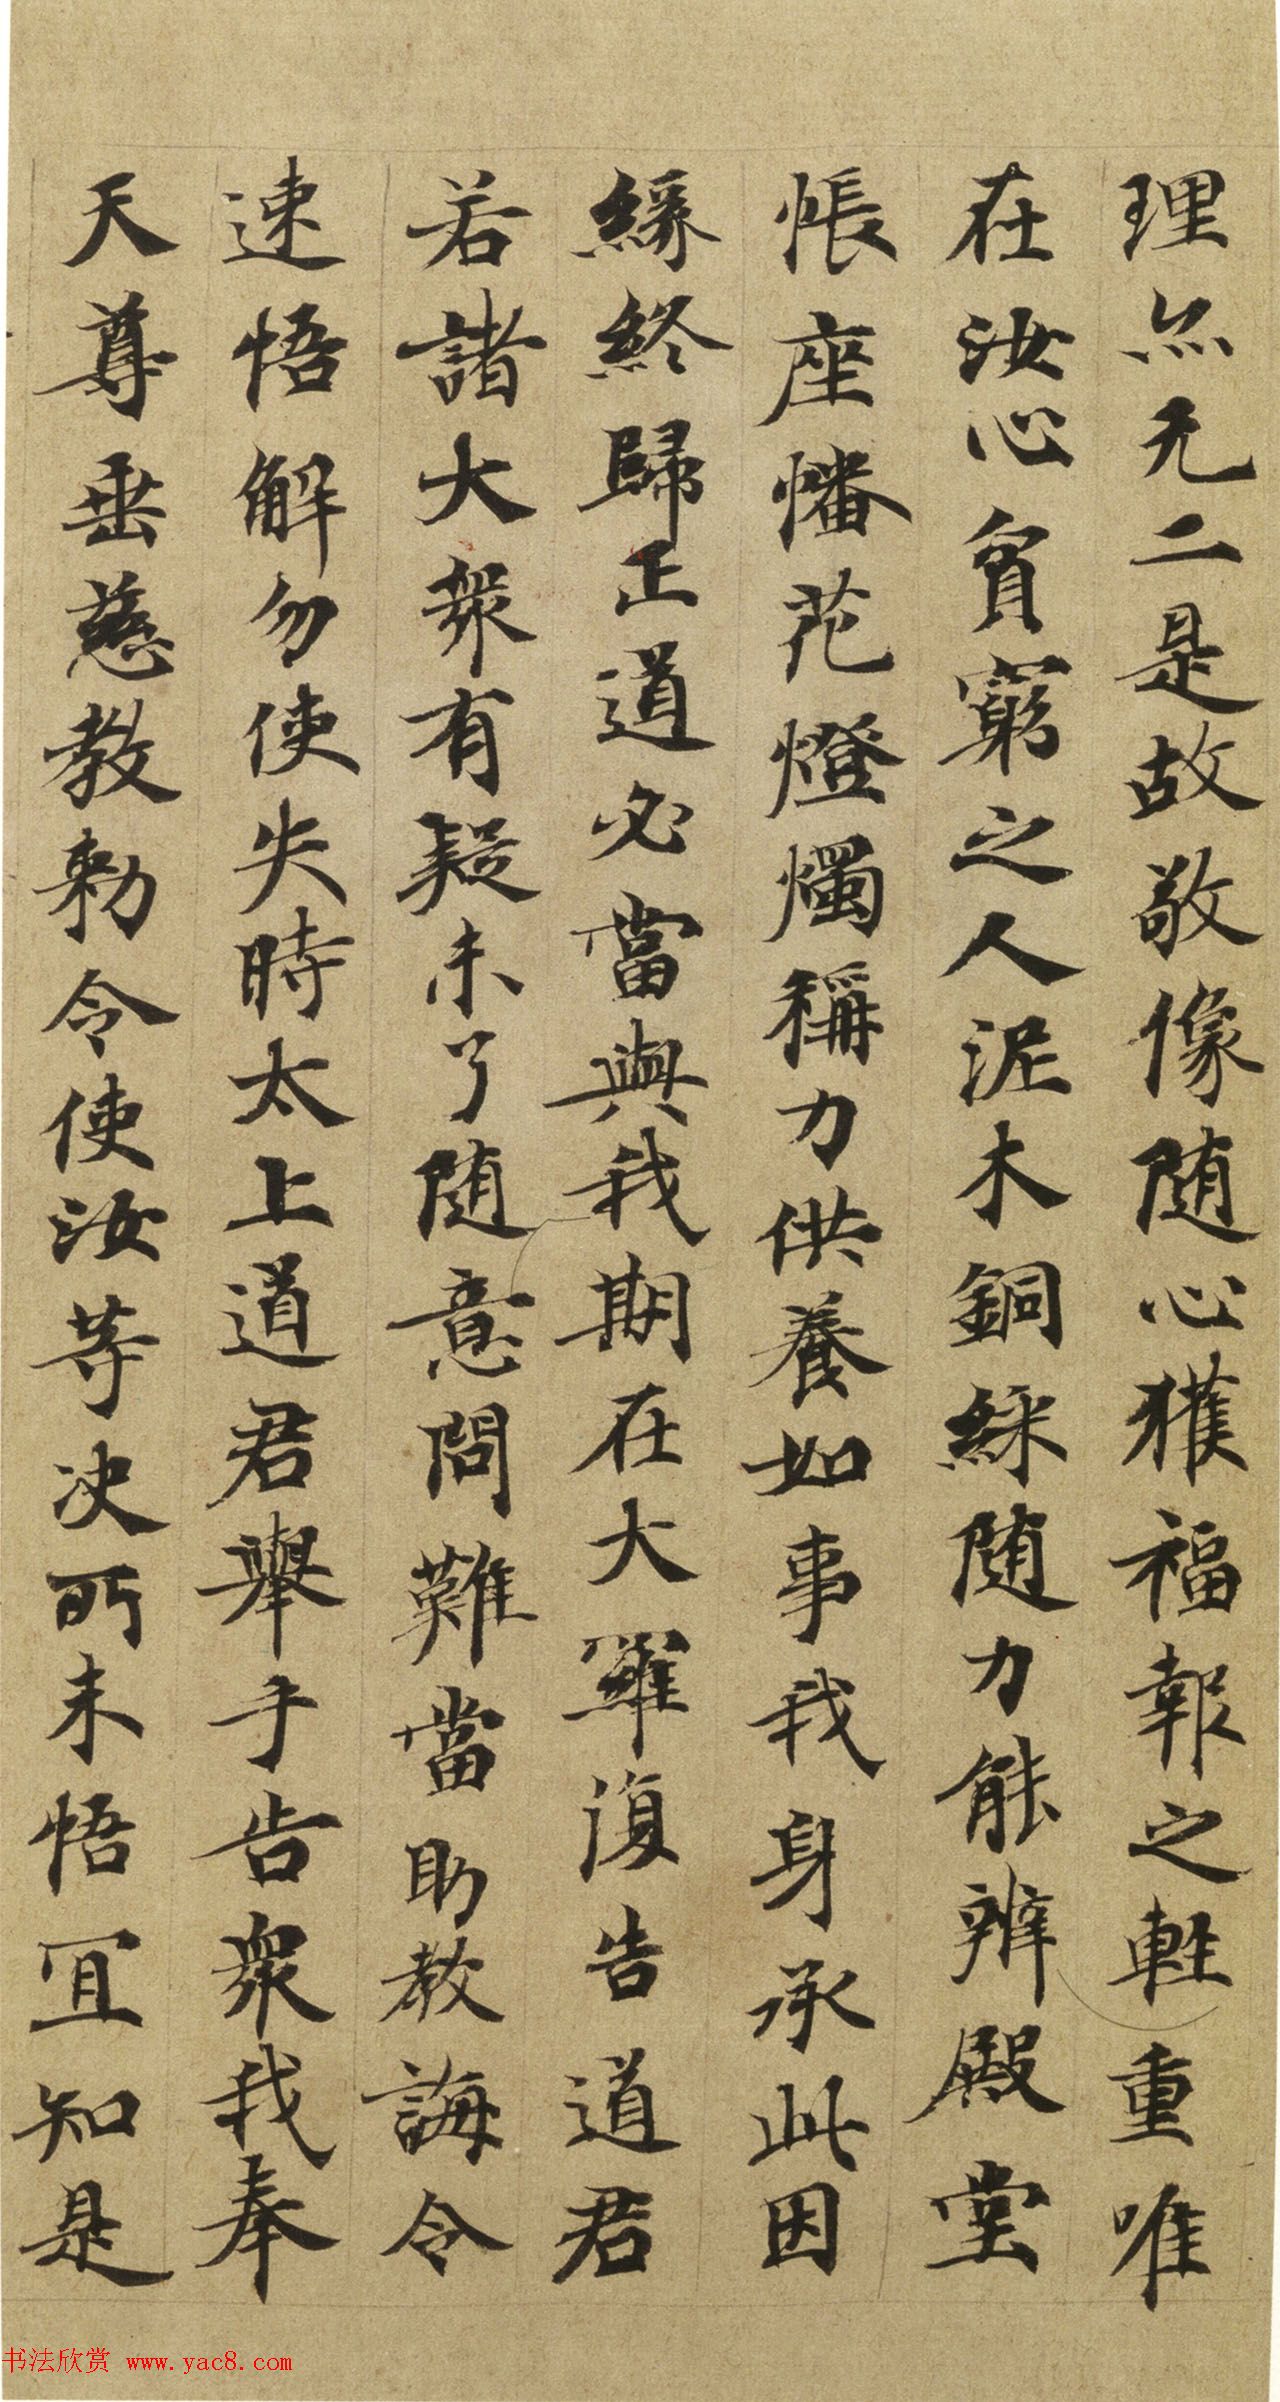 理亦无二是故敬像随心獲福報之軽重唯
在汝心貧窮之人泥木銅綵随力能辨殿堂
帳座幡花燈燭稱力供養如事我身承此因
緣終歸正道必當與我期在大羅復告道君
若諸大衆有疑未了随意問難當助教誨令
速悟解勿使失時太上道君舉手告衆我奉
天尊垂慈教勑令使汝等决所未悟冝知是
书法欣赏 www.yac8.com